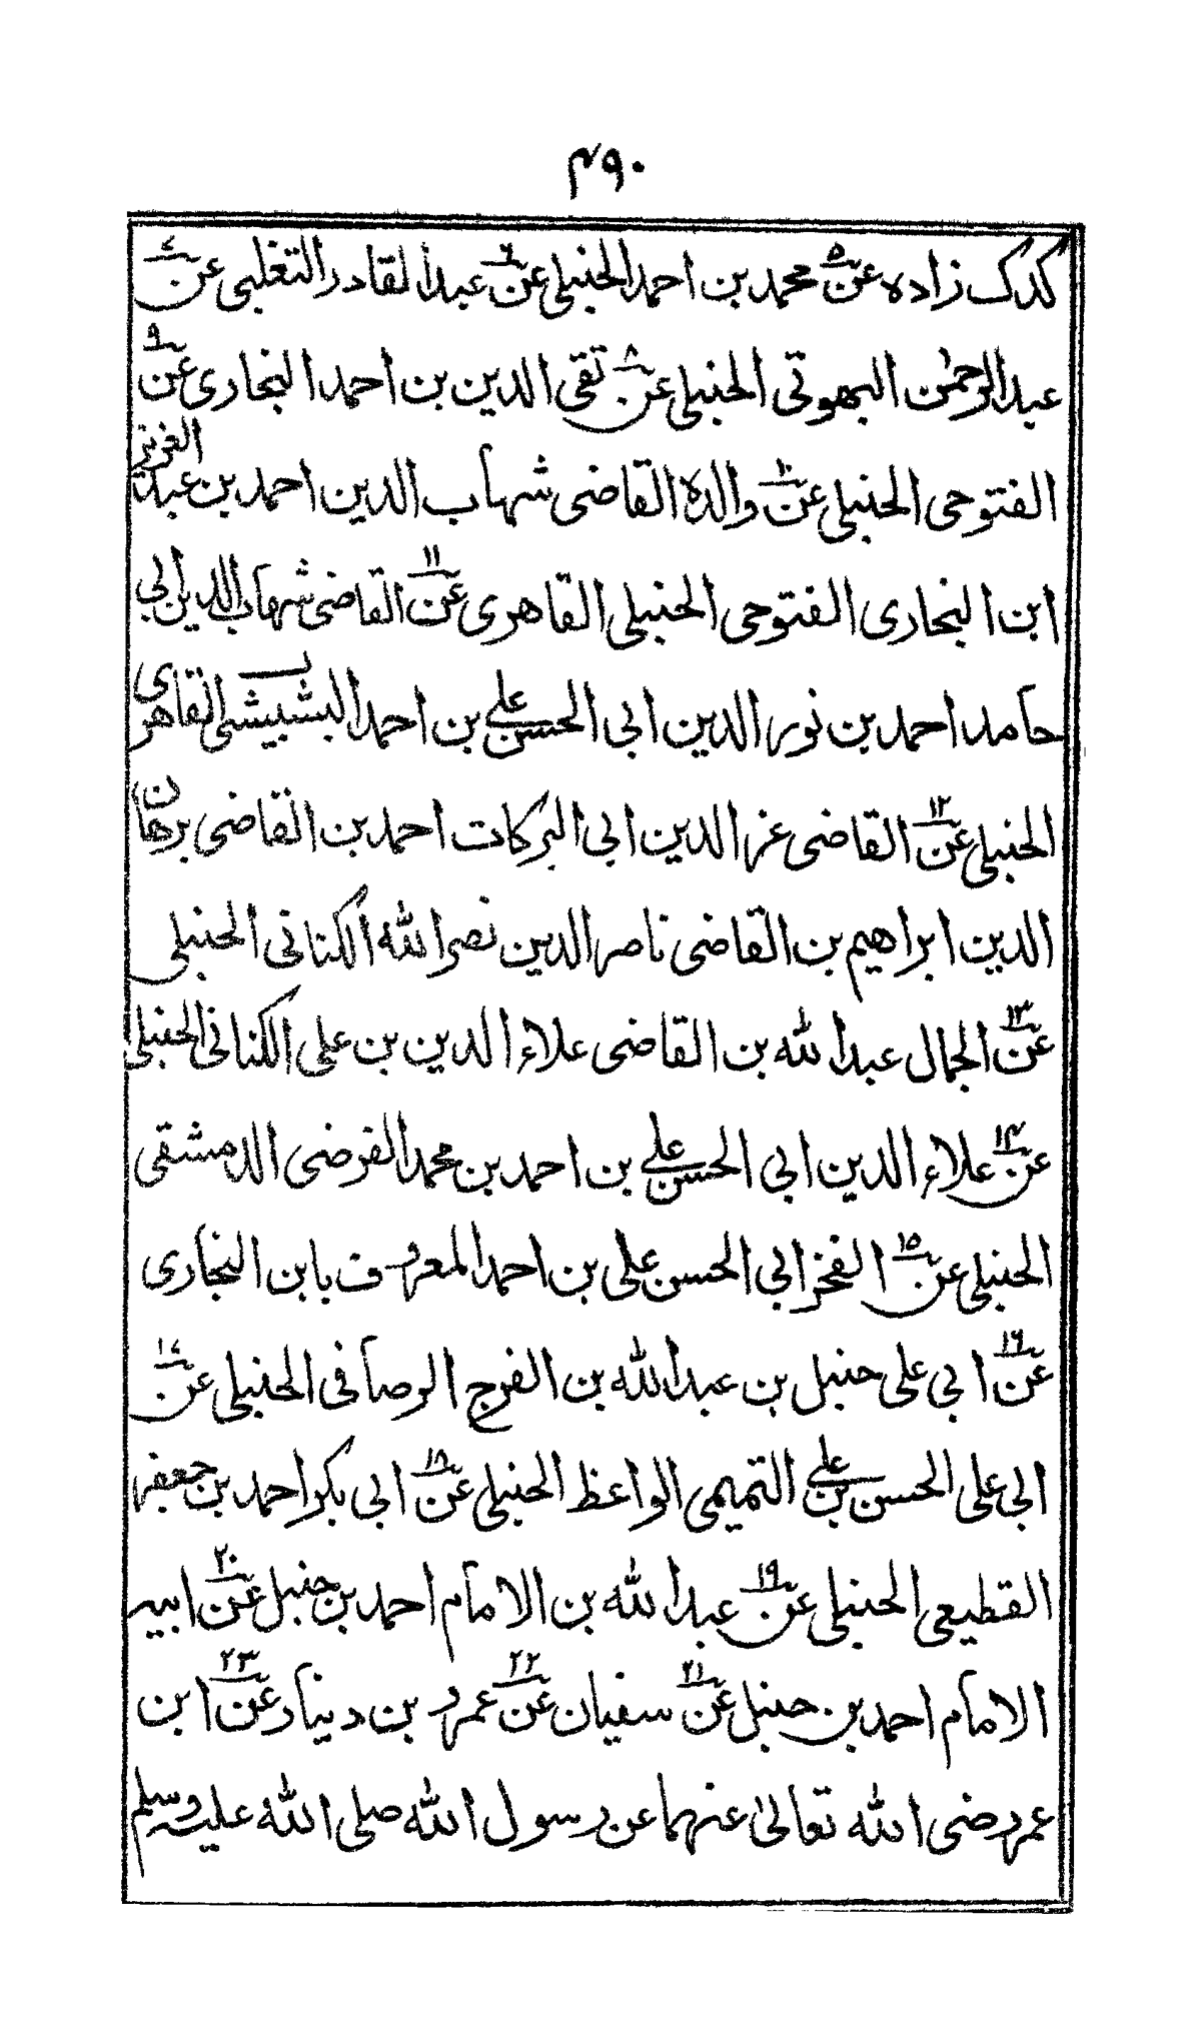 ۴۹۰
كدك زاده عن۵ محمد بن احمد الحنبلی عن۶ عبد القادر التغلبی عن۷
عبد الرحمٰن البهوتی الحنبلی عن۸ تقی الدین بن احمد النجاری عن۹
الفتوحی الحنبلی عن۱۰ والده القاضی شهاب الدین احمد بن عبد العزیز
ابن النجاری الفتوحی الحنبلی القاهری عن۱۱ القاضی شهاب الدین ابی
حامد احمد بن نور الدین ابی الحسن علی بن احمد البشبیشی القاهری
الحنبلی عن۱۲ القاضی عز الدین ابی البركات احمد بن القاضی برهان
الدین ابراهیم بن القاضی ناصر الدین نصر الله الكنانی الحنبلی
عن۱۳ الجمال عبد الله بن القاضی علاء الدین بن علی الكنانی الحنبلی
عن۱۴ علاء الدین ابی الحسن علی بن احمد بن محمد الفرضی الدمشقی
الحنبلی عن۱۵ الفخر ابی الحسن علی بن احمد المعروف بابن النجاری
عن۱۶ ابی علی حنبل بن عبد الله بن الفرج الرصافی الحنبلی عن۱۷
ابی علی الحسن بن علی التمیمی الواعظ الحنبلی عن۱۸ ابی بكر احمد بن جعفر
القطیعی الحنبلی عن۱۹ عبد الله بن الامام احمد بن حنبل عن۲۰ ابیه
الامام احمد بن حنبل عن۲۱ سفیان عن۲۲ عمرو بن دینار عن۲۳ ابن
عمر رضی الله تعالیٰ عنهما عن رسول الله صلی الله علیه وسلم